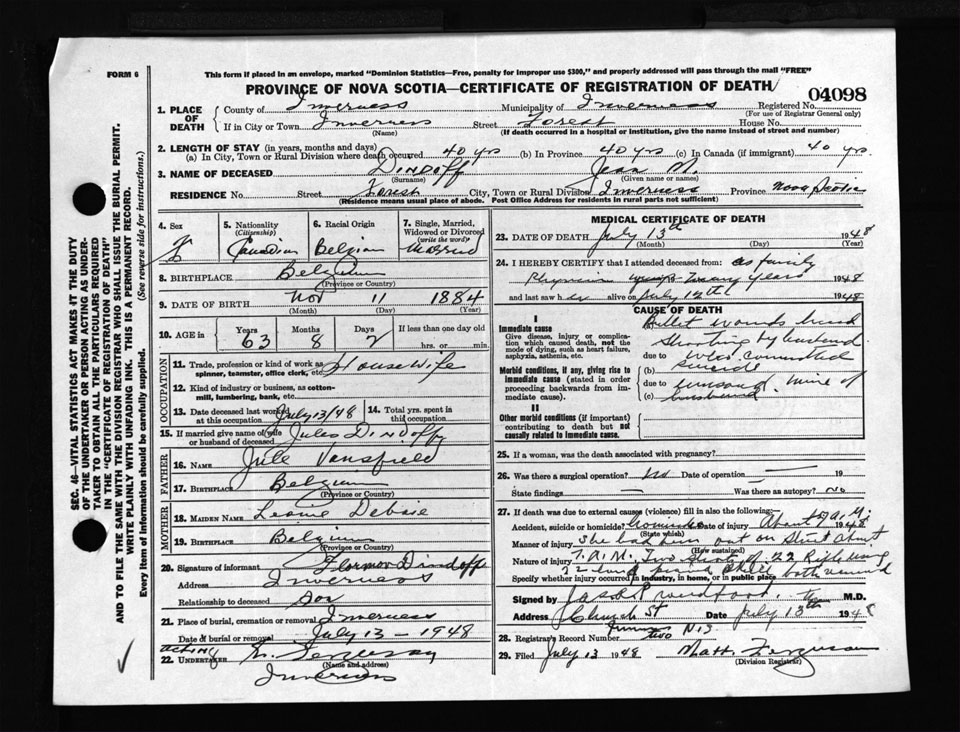 FORM 6
This form if placed in an envelope, marked "Dominion Statistics—Free, penalty for improper use $300," and properly addressed will pass through the mail "FREE"
PROVINCE OF NOVA SCOTIA—CERTIFICATE OF REGISTRATION OF DEATH
04098
1. PLACE OF DEATH
County of Inverness Municipality of Inverness Registered No.
(For use of Registrar General only)
If in City or Town Inverness Street Forest House No.
(Name) (If death occurred in a hospital or institution, give the name instead of street and number)
2. LENGTH OF STAY (in years, months and days)
(a) In City, Town or Rural Division where death occurred 40 yrs (b) In Province 40 yrs (c) In Canada (if immigrant) 40 yrs.
3. NAME OF DECEASED Dindoff M.
(Surname) (Given name or names)
RESIDENCE No. Street Forest City, Town or Rural Division Inverness Province Nova Scotia
(Residence means usual place of abode. Post Office Address for residents in rural parts not sufficient)
4. Sex F
5. Nationality (Citizenship) Canadian
6. Racial Origin Belgian
7. Single, Married, Widowed or Divorced (write the word) Married
8. BIRTHPLACE Belgium
(Province or Country)
9. DATE OF BIRTH Nov 11 1884
(Month) (Day) (Year)
10. AGE Years 63 Months 8 Days 2 If less than one day old hrs. or min.
OCCUPATION
11. Trade, profession or kind of work as spinner, teamster, office clerk, etc. House Wife
12. Kind of industry or business, as cotton-mill, lumbering, bank, etc.
13. Date deceased last worked at this occupation July 13/48 14. Total yrs. spent in this occupation
15. If married give name of wife or husband of deceased Jules Dindoff
FATHER
16. NAME Jule
17. BIRTHPLACE Belgium
(Province or Country)
MOTHER
18. MAIDEN NAME
19. BIRTHPLACE Belgium
(Province or Country)
20. Signature of informant
Address Inverness
Relationship to deceased Son
21. Place of burial, cremation or removal Inverness
Date of burial or removal July 13 – 1948
22. UNDERTAKER Acting M. Ferguson
(Name and address)
Inverness
MEDICAL CERTIFICATE OF DEATH
23. DATE OF DEATH July 13th 1948
(Month) (Day) (Year)
24. I HEREBY CERTIFY that I attended deceased from: as family
Physician Twenty years 1948
and last saw her alive on July 12th 1948
CAUSE OF DEATH
I
Immediate cause
Give disease, injury or complication which caused death, not the mode of dying, such as heart failure, asphyxia, asthenia, etc.
Bullet wounds
shooting by husband
due to who committed
(b) suicide
Morbid conditions, if any, giving rise to immediate cause (stated in order proceeding backwards from immediate cause).
due to unsound mind of
(c) husband
II
Other morbid conditions (if important) contributing to death but not causally related to immediate cause.
25. If a woman, was the death associated with pregnancy?
26. Was there a surgical operation? No Date of operation — 19
State findings — Was there an autopsy? No
27. If death was due to external causes (violence) fill in also the following:
Accident, suicide or homicide? Homicide Date of injury About 7 A.M. 1948
(State which)
Manner of injury She had been out on Street about
(How sustained)
Nature of injury 7. A.M. Two shots of .22 Rifle
Specify whether injury occurred in industry, in home, or in public place
Signed by M.D.
Address Church St Date July 13th 1948
28. Registrar's Record Number two
29. Filed July 13 1948 Matt. Ferguson
(Division Registrar)
SEC. 46—VITAL STATISTICS ACT MAKES IT THE DUTY OF THE UNDERTAKER OR PERSON ACTING AS UNDERTAKER TO OBTAIN ALL THE PARTICULARS REQUIRED IN THE "CERTIFICATE OF REGISTRATION OF DEATH" AND TO FILE THE SAME WITH THE DIVISION REGISTRAR WHO SHALL ISSUE THE BURIAL PERMIT.
WRITE PLAINLY WITH UNFADING INK. THIS IS A PERMANENT RECORD.
Every item of Information should be carefully supplied. (See reverse side for instructions.)